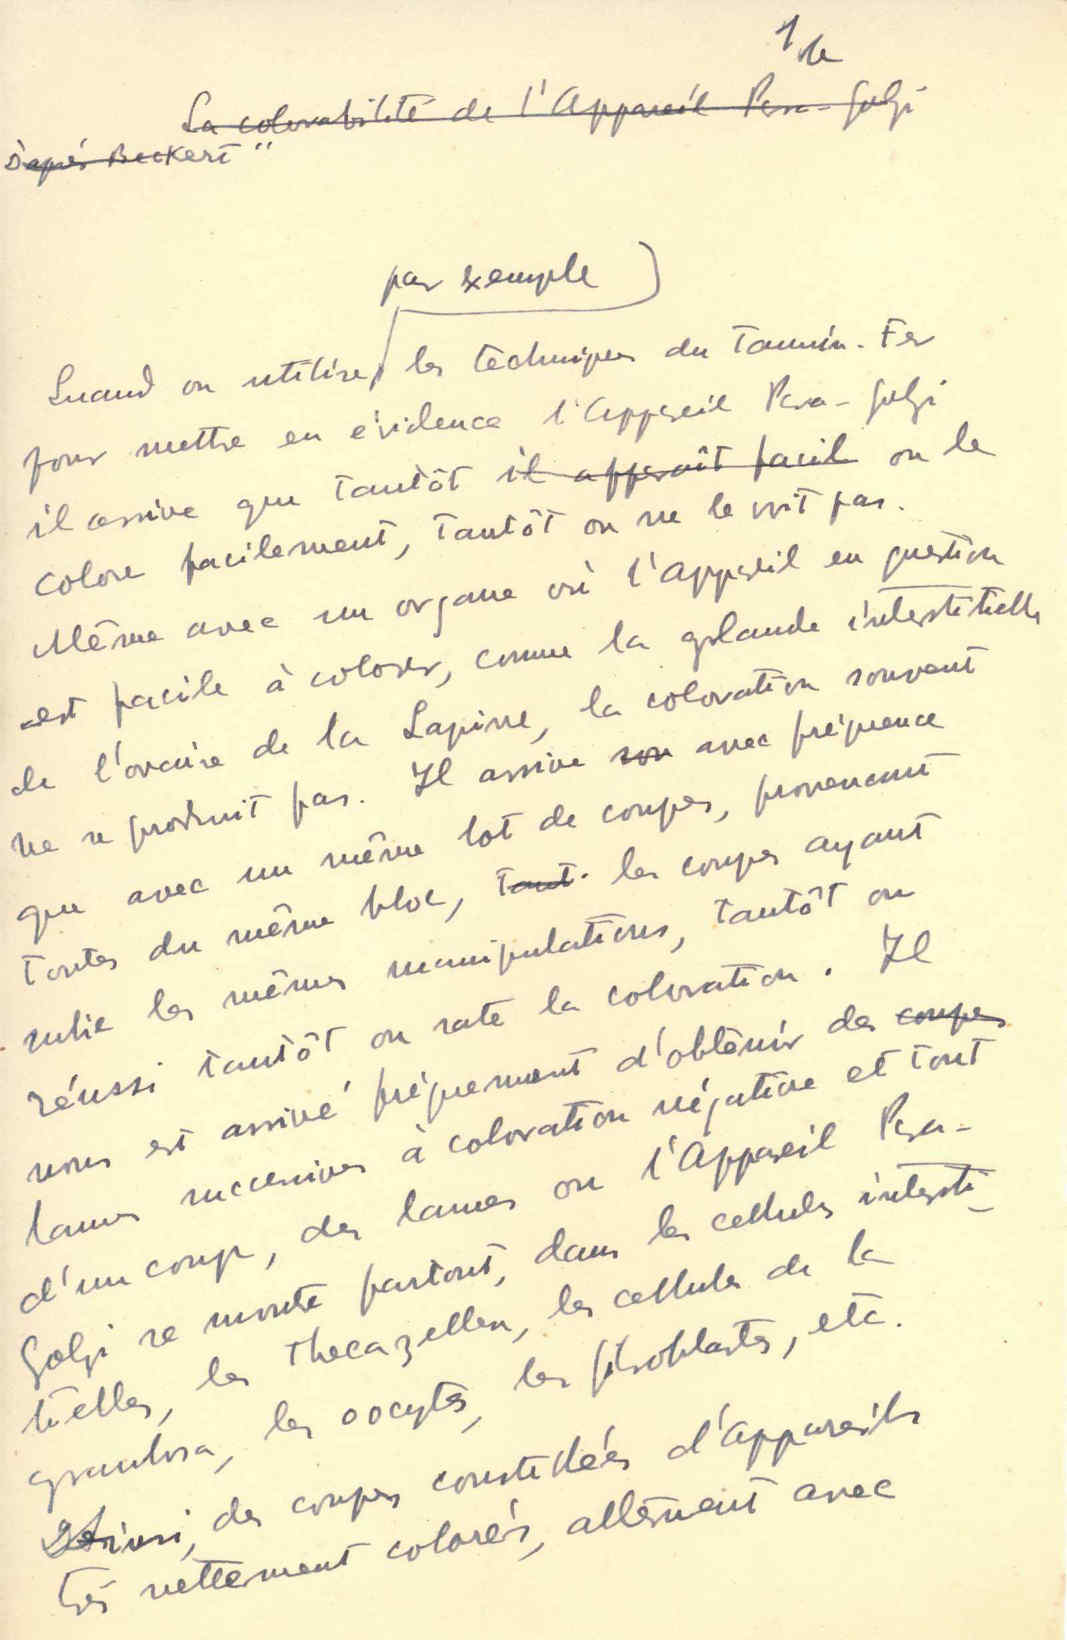 1
La colorabilité de l'Appareil Para-Golgi
D'après Beckert"
par exemple
Quand on utilise les techniques du Tannin-Fer
pour mettre en évidence l'Appareil Para-Golgi
il arrive que tantôt il apparaît facil on le
colore facilement, tantôt on ne le voit pas.
Même avec un organe où l'appareil en question
est facile à colorer, comme la glande interstitielle
de l'ovaire de la Lapine, la coloration souvent
ne se produit pas. Il arrive sou avec fréquence
que avec un même lot de coupes, provenant
toutes du même bloc, tant. les coupes ayant
subie les mêmes manipulations, tantôt on
réussi tantôt on rate la coloration. Il
nous est arrivé fréquement d'obtenir des coupes
lames successives à coloration négative et tout
d'un coup, des lames ou l'Appareil Para-
Golgi se montre partout, dans les cellules intersti-
tielles, les Thecazellen, les cellules de la
granulosa, les oocytes, les fibroblastes, etc.
Ainsi, des coupes constellées d'appareils
très nettement colorés, alternent avec